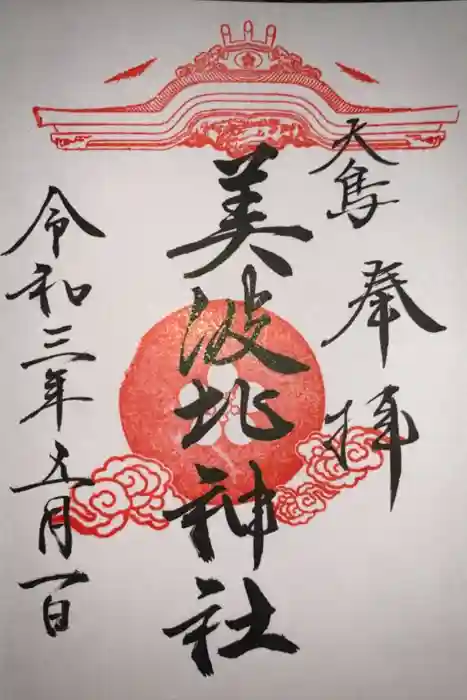 天馬
奉拝
美波比神社
令和三年五月一日